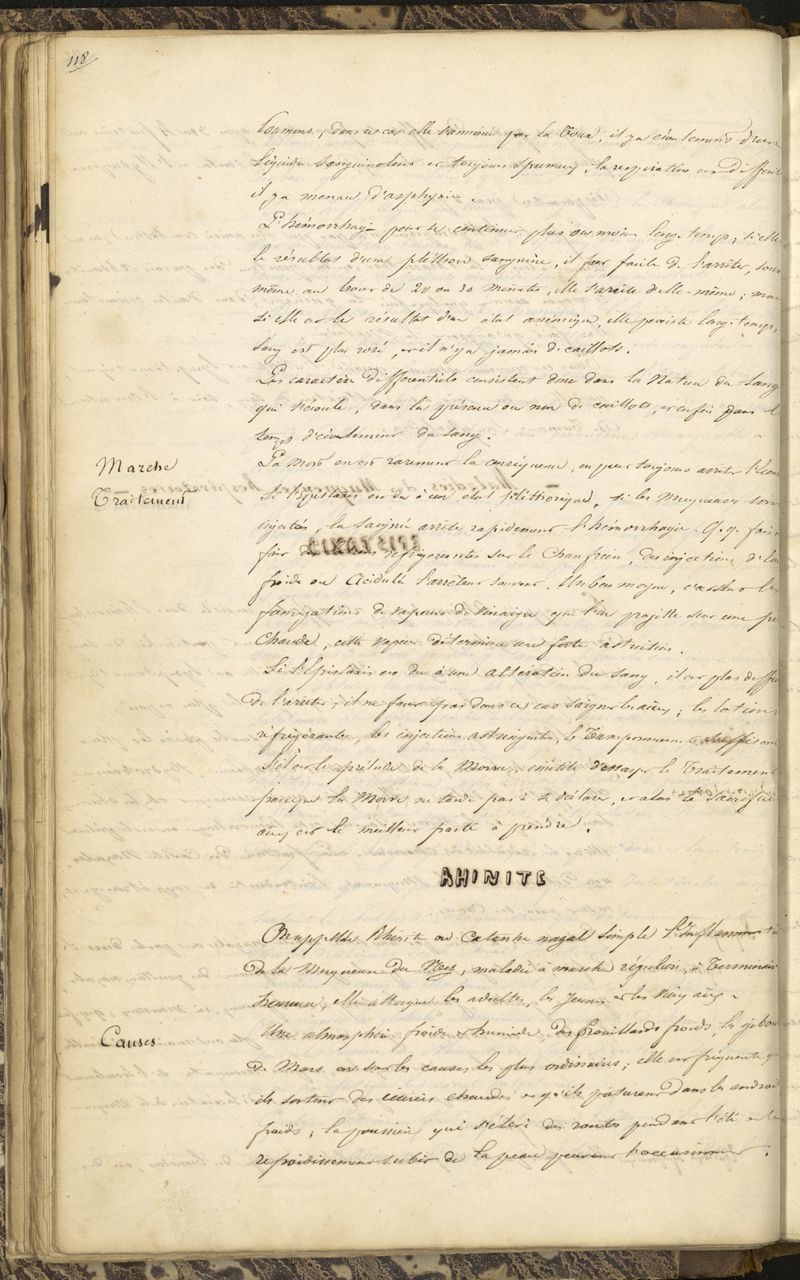 118
poumons, dans ces cas elle s'annonce par la Toux, il y a écoulement d'un
liquide sanguinolent et toujours spumeux, la respiration est Diffici
il y a menace d'asphyxie.
L'hémorrhagie peut se continuer plus ou moins long-temps, si elle
le résultat d'une pléthore sanguine, il est facile de l'arrêter, sou
même au bout de 20 ou 30 minutes, elle s'arrête d'elle-même; mai
si elle est le résultat d'un état anémique, elle persiste long-temps,
sang est plus rosé, et il n'y a jamais de caillots.
Les caractères Différentiels consistent donc dans la Nature du Sang
qui s'écoule, dans la présence ou non de caillots, et enfin dans l
temps d'écoulement du sang.
Marche
La Mort en est rarement la conséquence, on peut toujours arrêter l'écou
Traitement
Si l'épistaxis est dû à un état pléthorique, si les Muqueuses sont
injectées, la saignée arrête rapidement l'hémorrhagie. Q.q. fois
fair des lotions réfrigérentes sur le Chanfrein, des injections de l'eau
froide ou acidulée l'arrêtent souvent. Un bon moyen, c'est les
fumigations de vapeurs de vinaigre que l'on projette sur une pe
Chaude, cette vapeur détermine une forte astriction.
Si l'Epistaxis est du à une altération du sang, il est plus diffic
de l'arrêter; il ne faut pas dans ce cas saigner; les lotions
réfrigérantes, les injections astringentes, le Tamponnement suffisent
S'il est le prélude de la Morve, inutile d'essayer le Traitement
parceque la Morve ne tarde pas à se déclarer, et alors le Sacrifice
est le meilleur parti à prendre.
RHINITE
On appelle Rhinite ou Catarrhe nazal simple l'Inflammati
de la Muqueuse du Nez, maladie à marche régulière, à Terminais
heureuse, elle attaque les adultes, les jeunes et les vieux
Causes
Une atmosphère froide et humide, des brouillards froids, les giboul
de Mars en sont les causes les plus ordinaires; elle est fréquente q
ils sortent des écuries chaudes et qu'ils pâturent Dans les endroi
froids; la poussière qui s'élève des routes pendant l'été et le
refroidissement subit de la peau peuvent l'occasionner.